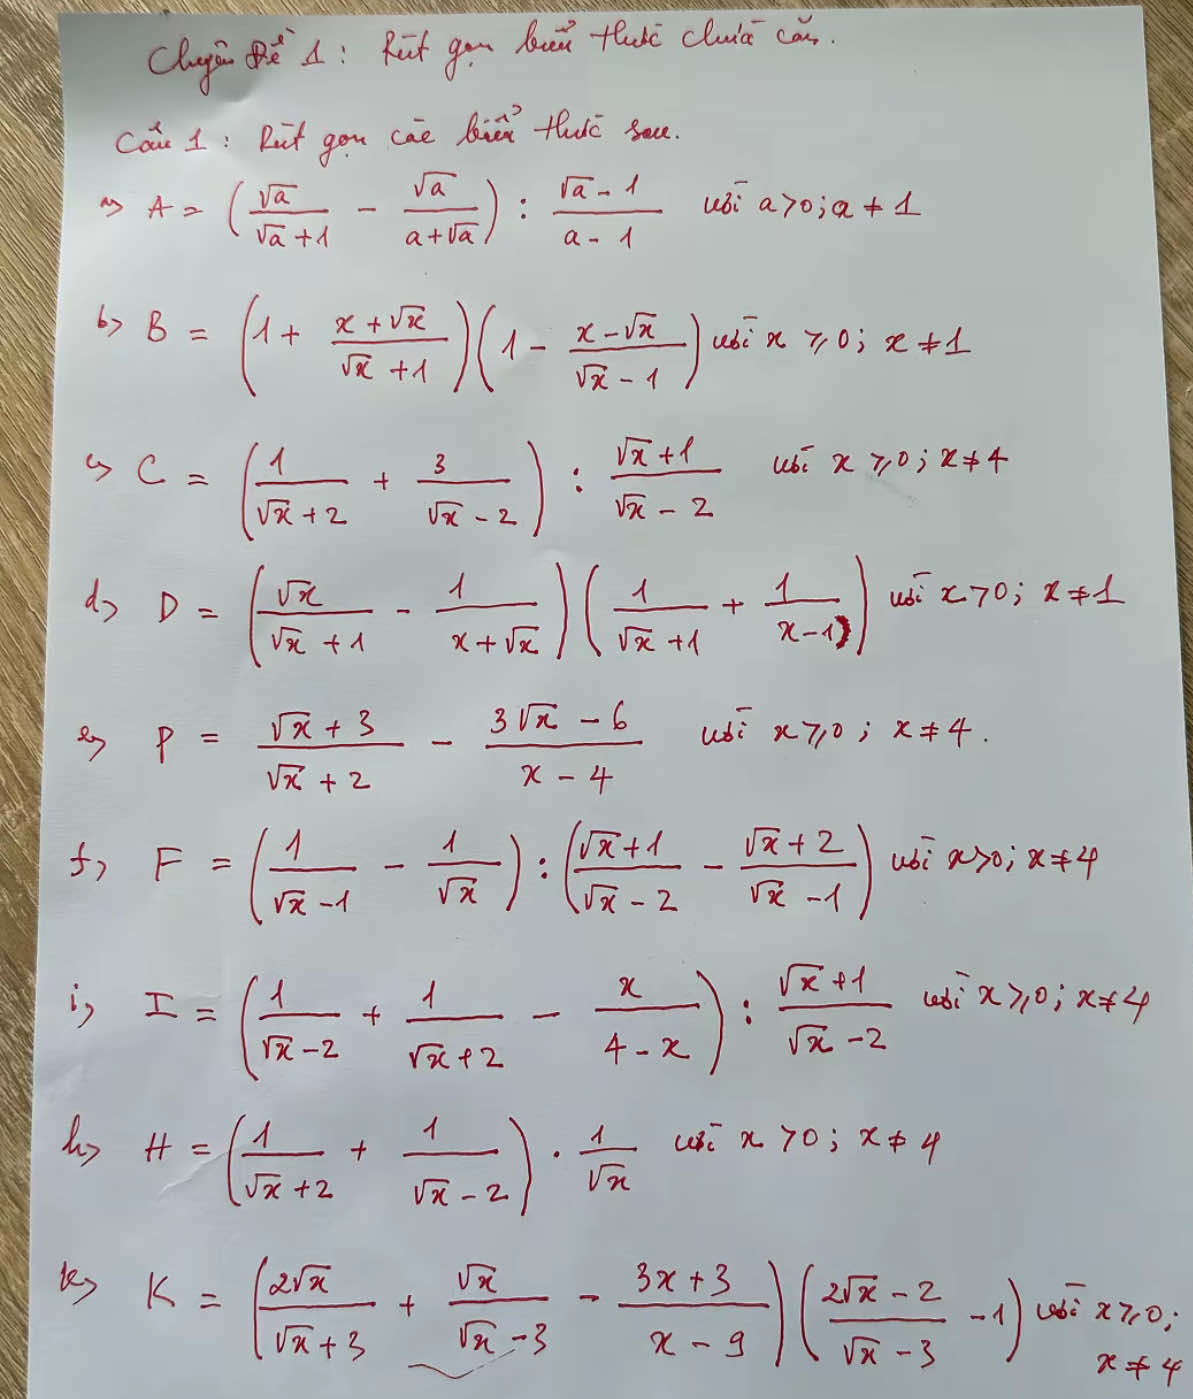 Chuyên Đề 1 : Rút gọn biểu thức chứa căn.
Câu 1 : Rút gọn các biểu thức sau.
a) A = (√a/(√a + 1) - √a/(a + √a)) : (√a - 1)/(a - 1) với a > 0 ; a ≠ 1
b) B = (1 + (x + √x)/(√x + 1))(1 - (x - √x)/(√x - 1)) với x ⩾ 0 ; x ≠ 1
c) C = (1/(√x + 2) + 3/(√x - 2)) : (√x + 1)/(√x - 2) với x ⩾ 0 ; x ≠ 4
d) D = (√x/(√x + 1) - 1/(x + √x))(1/(√x + 1) + 1/(x - 1)) với x > 0 ; x ≠ 1
e) P = (√x + 3)/(√x + 2) - (3√x - 6)/(x - 4) với x ⩾ 0 ; x ≠ 4.
f) F = (1/(√x - 1) - 1/√x) : ((√x + 1)/(√x - 2) - (√x + 2)/(√x - 1)) với x > 0 ; x ≠ 4
i) I = (1/(√x - 2) + 1/(√x + 2) - x/(4 - x)) : (√x + 1)/(√x - 2) với x ⩾ 0 ; x ≠ 4
h) H = (1/(√x + 2) + 1/(√x - 2)) . 1/√x với x > 0 ; x ≠ 4
k) K = (2√x/(√x + 3) + √x/(√x - 3) - (3x + 3)/(x - 9))((2√x - 2)/(√x - 3) - 1) với x ⩾ 0 ;
x ≠ 4